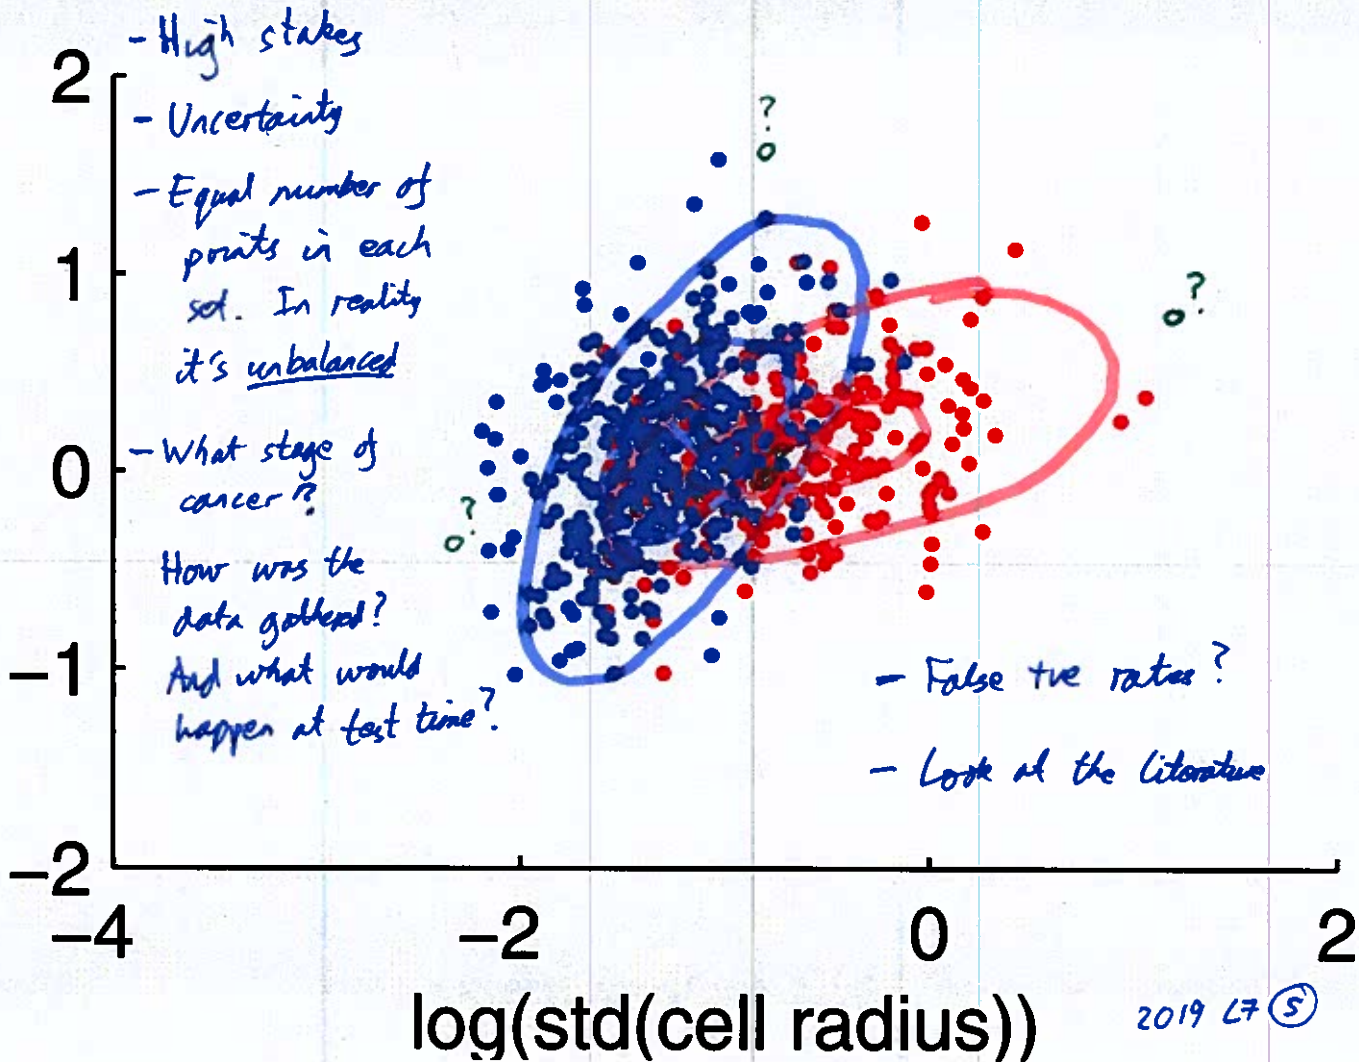 - High stakes
- Uncertainty
- Equal number of
points in each
set. In reality
it's unbalanced
- What stage of
cancer?
How was the
data gathered?
And what would
happen at test time?
- False +ve rates?
- Look at the literature
?
?
?
2
1
0
−1
−2
−4
−2
0
2
log(std(cell radius))
2019 L7 5